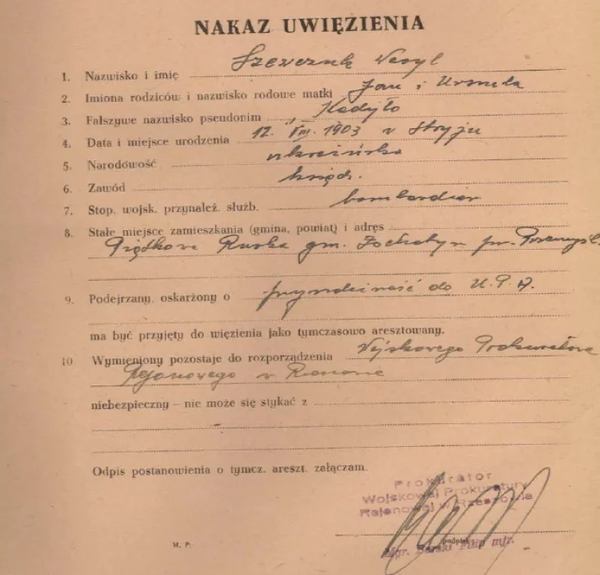 NAKAZ UWIĘZIENIA
1. Nazwisko i imię Szewczuk Wasyl
2. Imiona rodziców i nazwisko rodowe matki Jan i Urszula
3. Fałszywe nazwisko pseudonim "Kadyło
4. Data i miejsce urodzenia 12. VIII. 1903 w Stryju
5. Narodowość ukraińska
6. Zawód ksiądz.
7. Stop. wojsk. przynależ. służb. bombardier
8. Stałe miejsce zamieszkania (gmina, powiat) i adres
Piątkowa Ruska gm. pow. Przemyśl.
9. Podejrzany, oskarżony o przynależność do U.P.A.
ma być przyjęty do więzienia jako tymczasowo aresztowany.
10 Wymieniony pozostaje do rozporządzenia Wojskowego Prokuratora
Rejonowego w
niebezpieczny – nie może się stykać z
Odpis postanowienia o tymcz. areszt. załączam.
Prokurator
Wojskowej Prokuratury
Rejonowej w Rzeszowie
podpis
M. P.
Mgr. Barski Filip mjr.